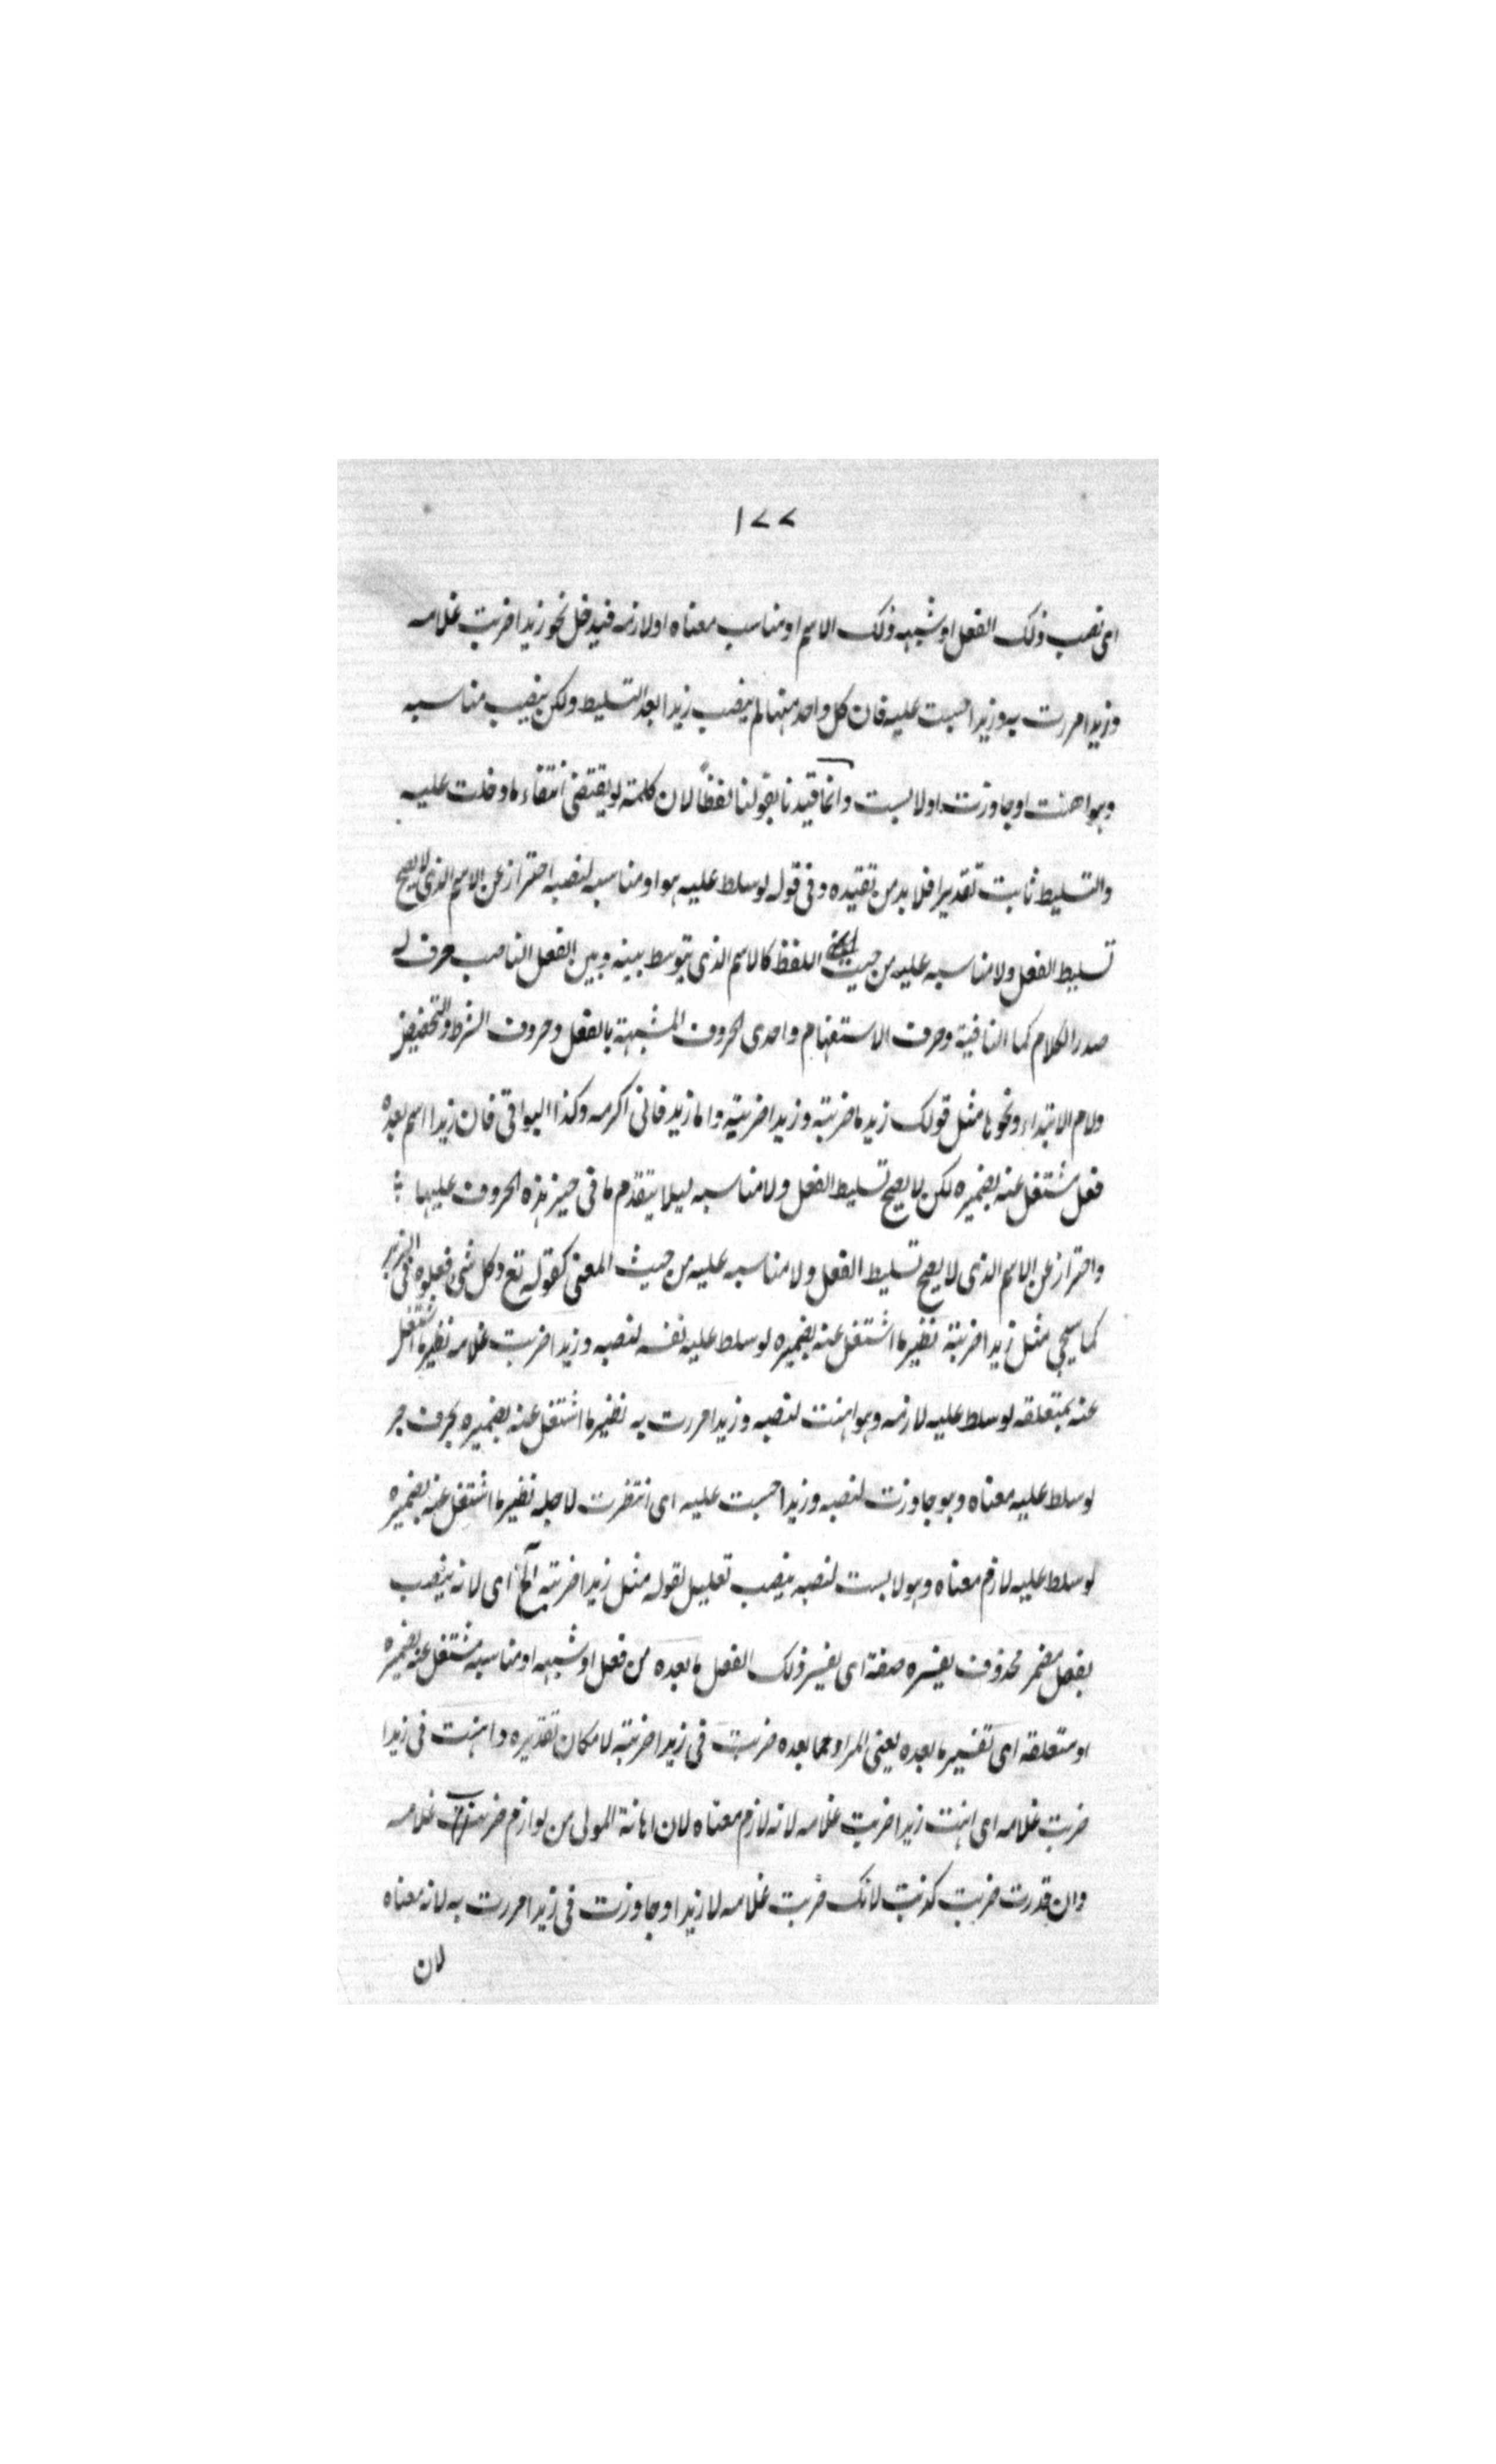 ١٧٧
اى نصب ذلك الفعل او شبهه ذلك الاسم او مناسب معناه او لازمه فيدخل نحو زيدا ضربت غلامه
وزيدا مررت به وزيدا حبست عليه فان كل واحد منها لم ينصب زيدا بعد التسليط ولكن ينصب مناسبه
وهو اهنت او جاوزت او لابست وانما قيدنا بقولنا لفظاً لان كلمة لو يقتضى انتفاء ما دخلت عليه
والتسليط ثابت تقديرا فلا بد من تقيده وفى قوله لو سلط عليه هو او مناسبه لنصبه احتراز عن الاسم الذى لا يصح
تسليط الفعل ولا مناسبه عليه من حيث اللفظ كالاسم الذى يتوسط بينه وبين الفعل الناصب حرف له
صدر الكلام كما النافية وحرف الاستفهام واحدى الحروف المشبهة بالفعل وحروف الشرط والتحضيض
ولام الابتداء ونحوها مثل قولك زيد ما ضربته وزيد اضربته واما زيد فانى اكرمه وكذا البواقى فان زيدا اسم بعده
فعل مشتغل عنه بضميره لكن لا يصح تسليط الفعل ولا مناسبه ليلا يتقدم ما فى حيز هذه الحروف عليها
واحتراز عن الاسم الذى لا يصح تسليط الفعل ولا مناسبه عليه من حيث المعنى كقوله تع وكل شئ فعلوه فى الزبر
كما سيجى مثل زيدا ضربته نظير ما اشتغل عنه بضميره لو سلط عليه نفسه لنصبه وزيدا ضربت غلامه نظير ما اشتغل
عنه بمتعلقه لو سلط عليه لازمه وهو اهنت لنصبه وزيدا مررت به نظير ما اشتغل عنه بضميره بحرف جر
لو سلط عليه معناه وهو جاوزت لنصبه وزيدا حبست عليه اى انتظرت لاجله نظير ما اشتغل عنه بضميره
لو سلط عليه لازم معناه وهو لابست لنصبه ينصب تعليل لقوله مثل زيدا ضربته آلخ اى لانه ينصب
بفعل مضمر محذوف يفسره صفة اى يفسر ذلك الفعل ما بعده من فعل او شبهه او مناسبه مشتغل عنه بضميره
او متعلقه اى تفسير ما بعده يعنى المراد مما بعده ضربت فى زيدا ضربته لامكان تقديره واهنت فى زيدا
ضربت غلامه اى اهنت زيدا ضربت غلامه لانه لازم معناه لان اهانة المولى من لوازم ضرب غلامه
وان قدرت ضربت كذبت لانك ضربت غلامه لا زيدا وجاوزت فى زيدا مررت به لانه معناه
لان